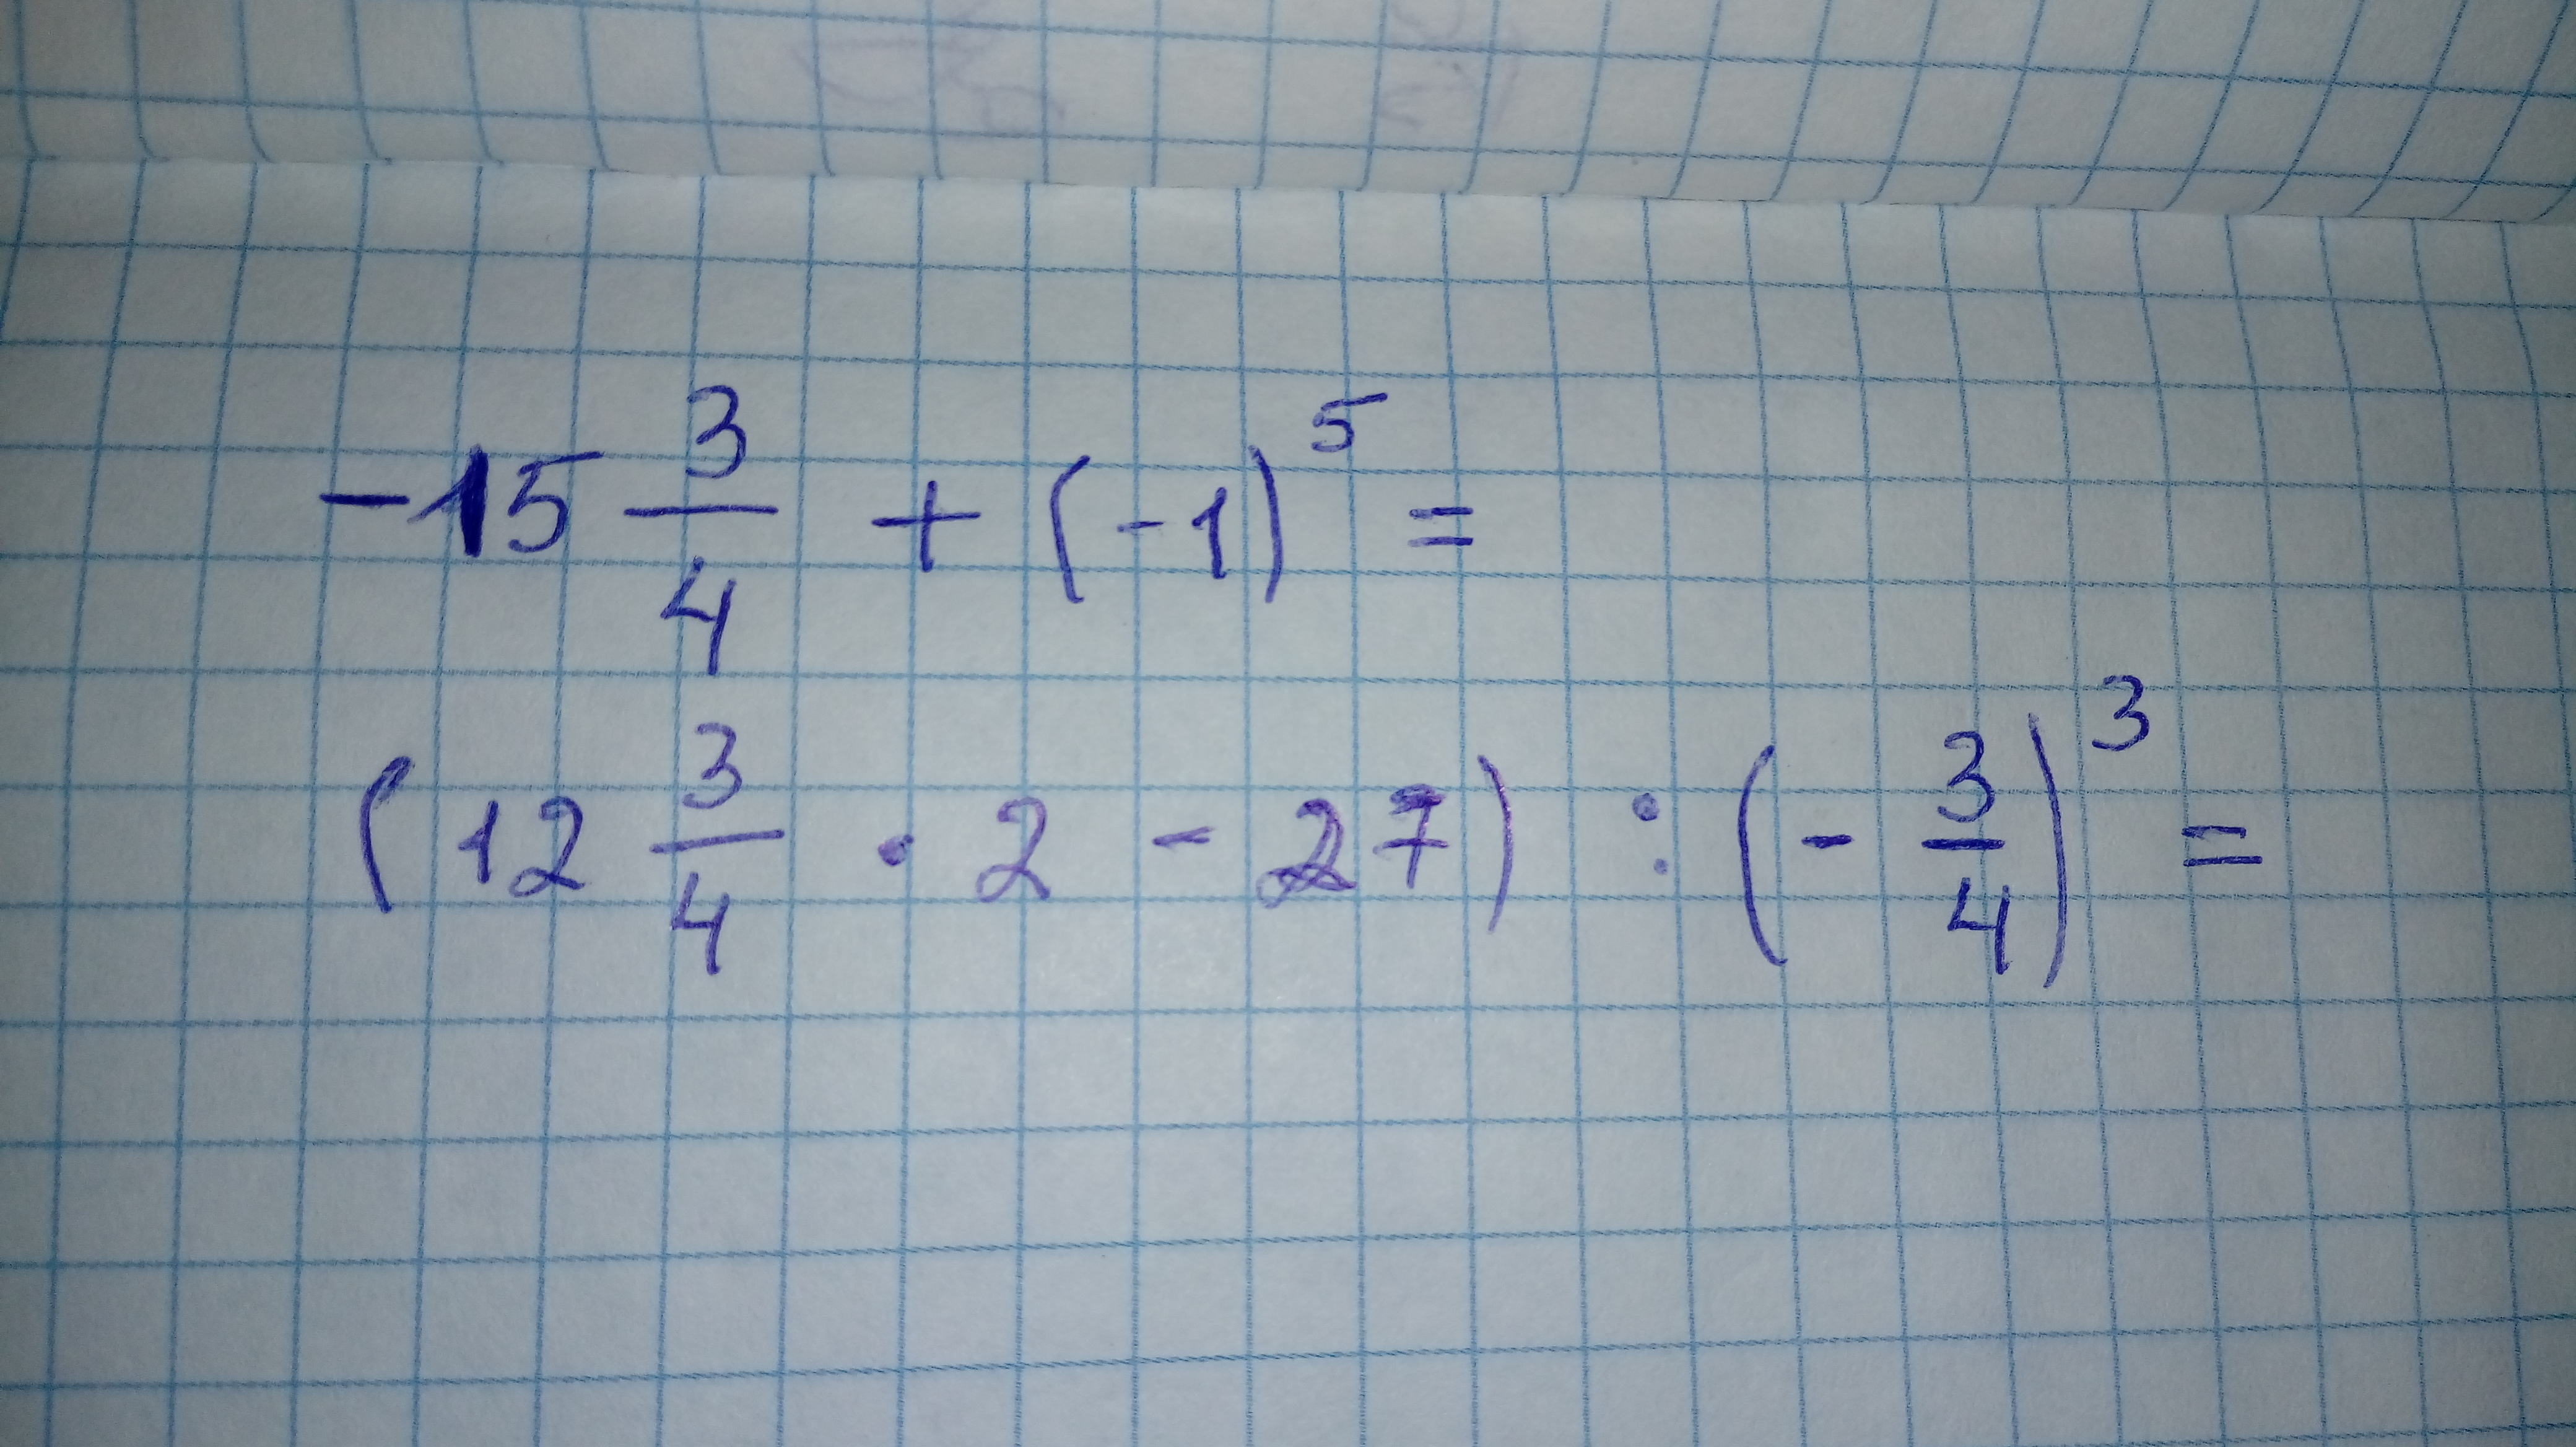 -15 3/4 + (-1)^5 =
(12 3/4 · 2 - 27) : (-3/4)^3 =